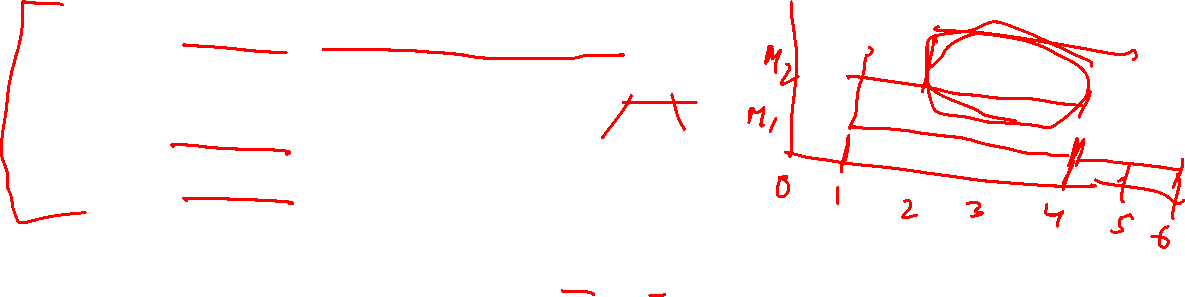 M2
M1
0 1 2 3 4 5 6